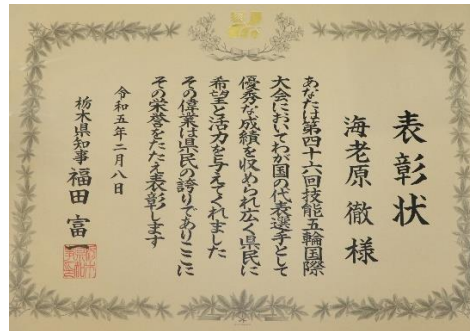 表彰状
海老原 徹 様
あなたは第四十六回技能五輪国際
大会においてわが国の代表選手として
優秀な成績を収められ広く県民に
希望と活力を与えてくれました
その偉業は県民の誇りでありここに
その栄誉をたたえ表彰します
令和五年二月八日
栃木県知事 福田 富一